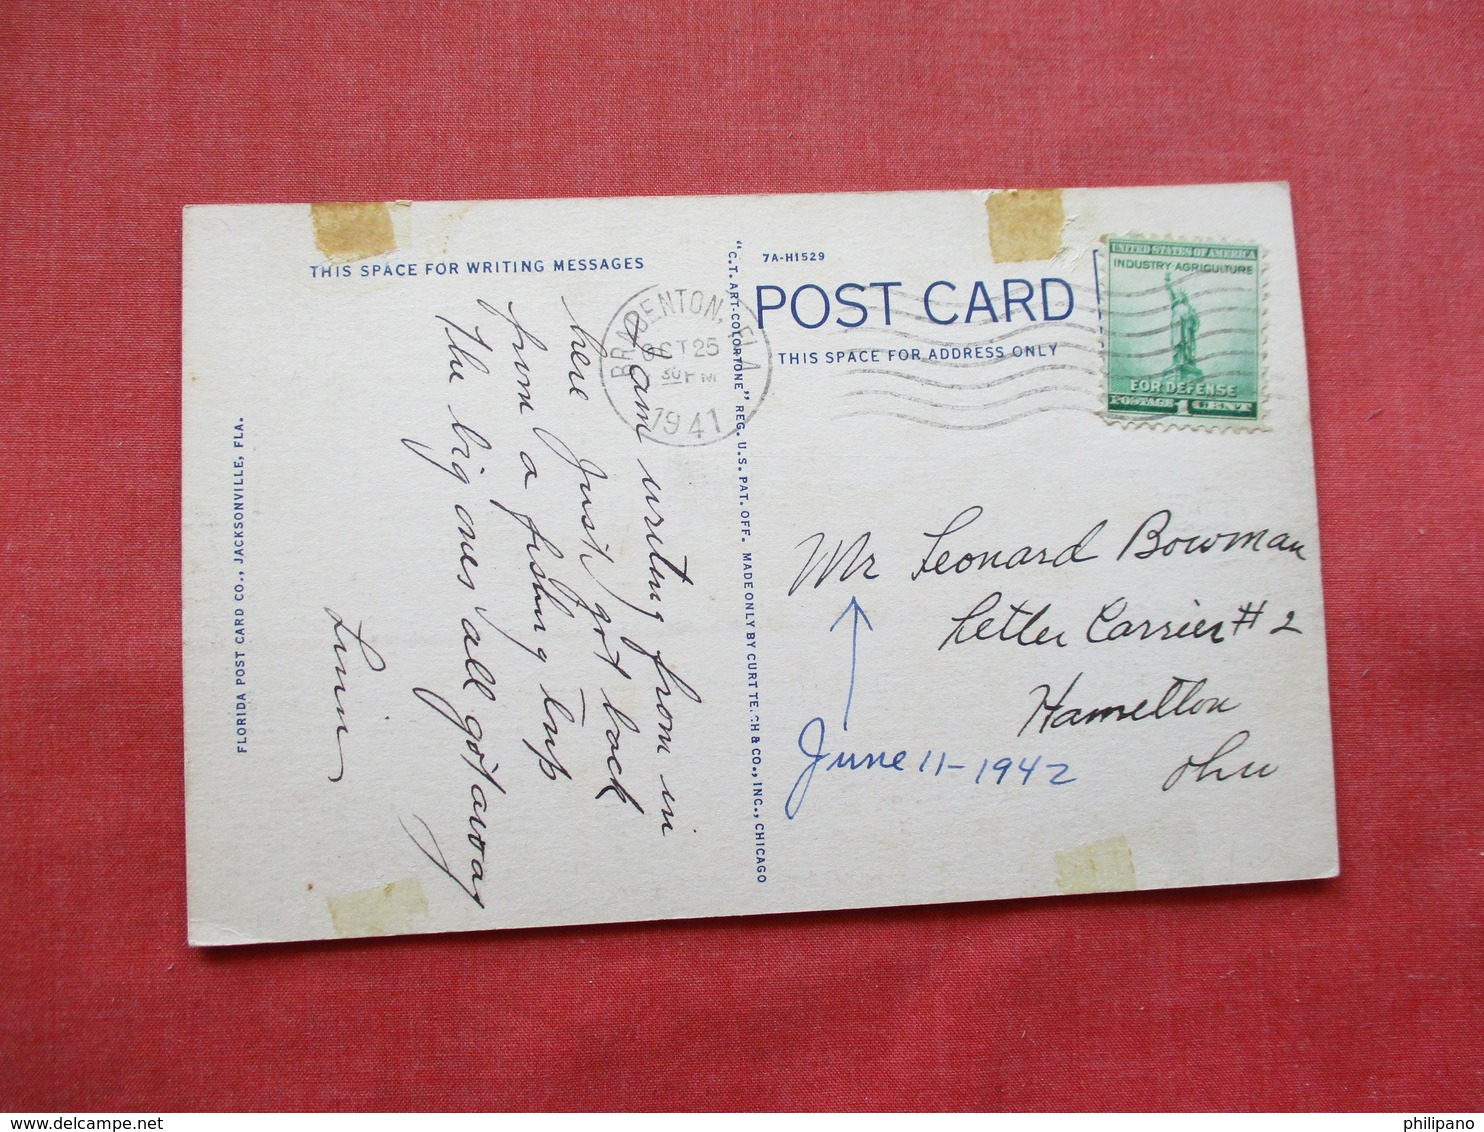 THIS SPACE FOR WRITING MESSAGES
I am writing from in
here Just got back
from a fishing trip
The big ones all got away
FLORIDA POST CARD CO., JACKSONVILLE, FLA.
"C.T. ART-COLORTONE" REG. U.S. PAT. OFF. MADE ONLY BY CURT TEICH & CO., INC., CHICAGO
BRADENTON, FLA
OCT 25
30 PM
1941
7A-H1529
POST CARD
THIS SPACE FOR ADDRESS ONLY
UNITED STATES OF AMERICA
INDUSTRY AGRICULTURE
FOR DEFENSE
POSTAGE 1 CENT
Mr Leonard Bowman
Letter Carrier #2
Hamelton
Ohio
June 11-1942
philipano